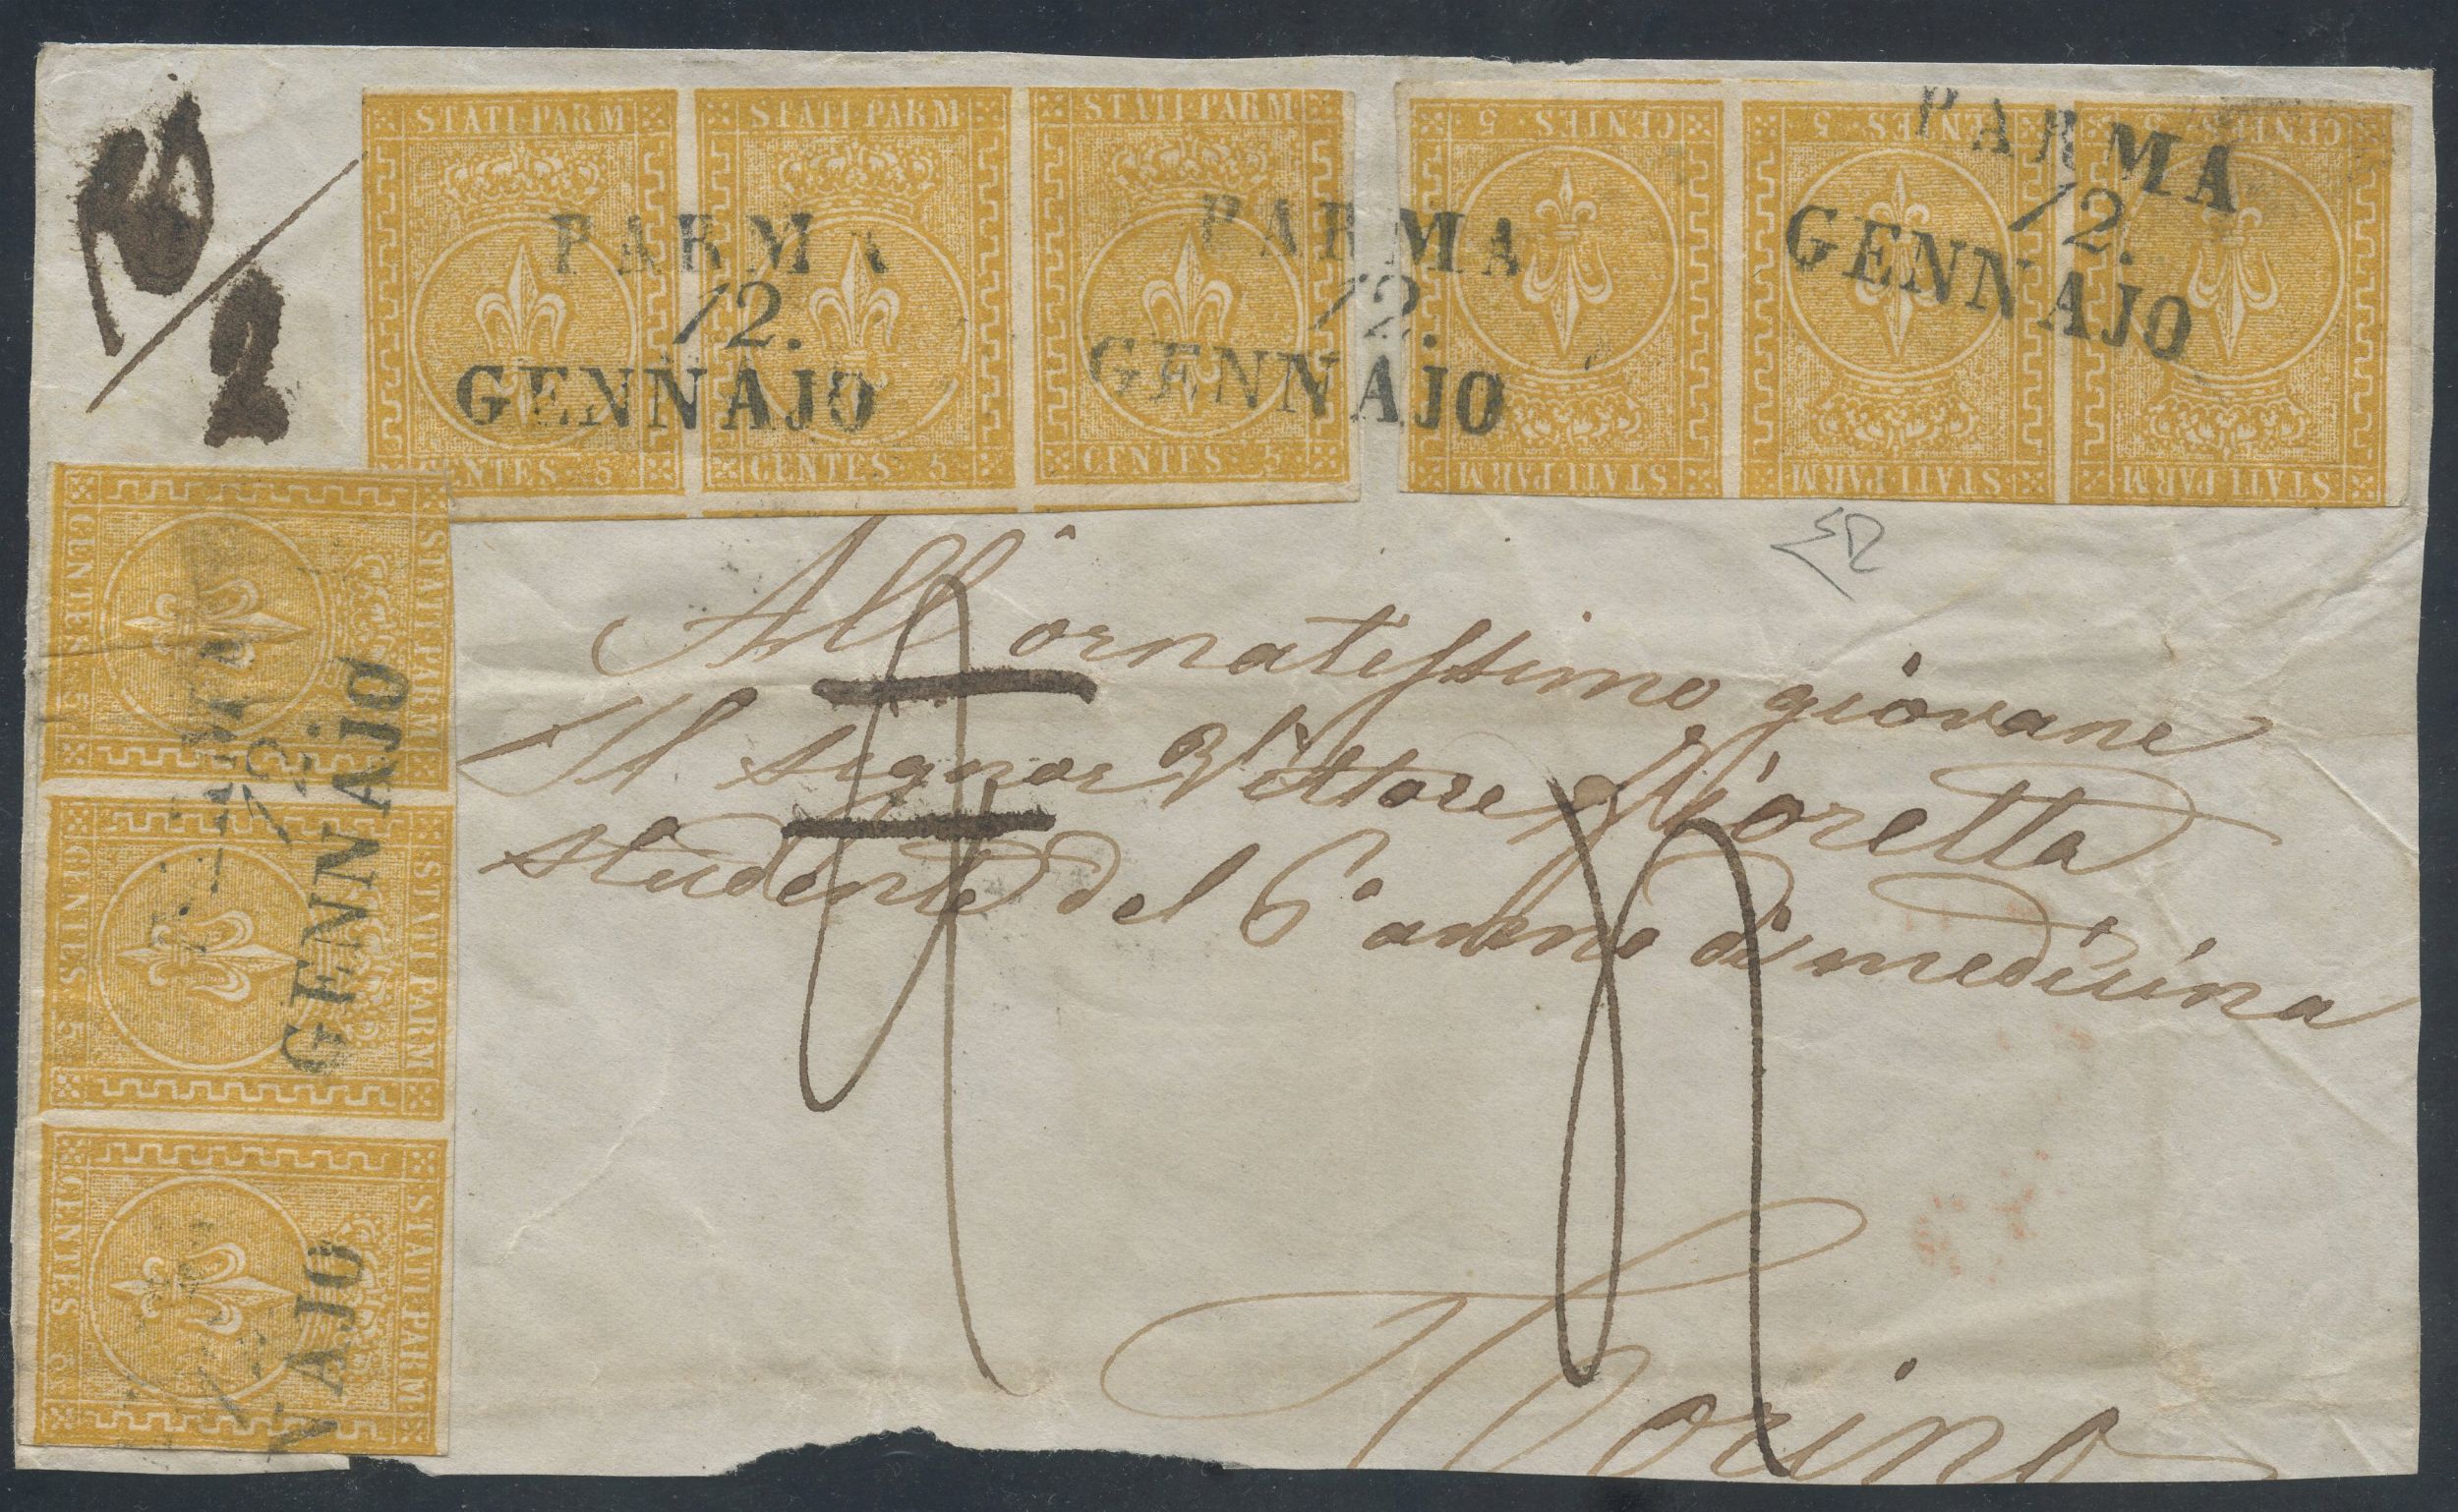 STATI·PARM STATI·PARM STATI·PARM
CENTES·5 CENTES·5 CENTES·5
PARMA
12.
GENNAJO
PARMA
12.
GENNAJO
CENTES·5 CENTES·5 CENTES·5
STATI·PARM STATI·PARM STATI·PARM
PARMA
12.
GENNAJO
2
STATI·PARM
CENTES·5
STATI·PARM
CENTES·5
STATI·PARM
CENTES·5
12.
GENNAJO
NAJO
All' ornatissimo giovane
Il signor Vittore Fioretta
studente del 6° anno di medicina
Torino